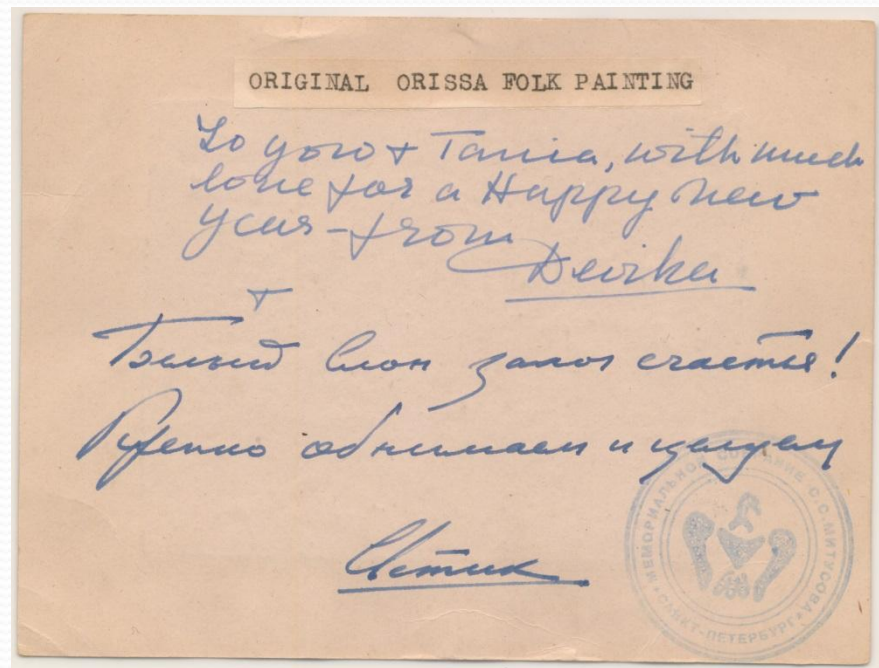 ORIGINAL ORISSA FOLK PAINTING
To you + Tania, with much
love for a Happy New
Year - from
Devika
+
Белый Слон залог счастья!
Крепко обнимаем и целуем
Светик
МЕМОРИАЛЬНОЕ СОБРАНИЕ С.С.МИТУСОВА
САНКТ-ПЕТЕРБУРГ